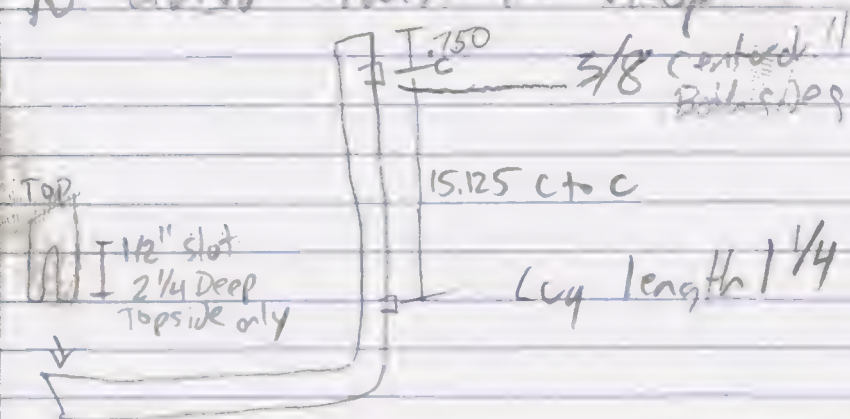 .750
C
5/8 Centered "
Both sides
15.125 C to C
TOP
1/2" slot
2 1/4 Deep
Topside only
Lug length 1 1/4